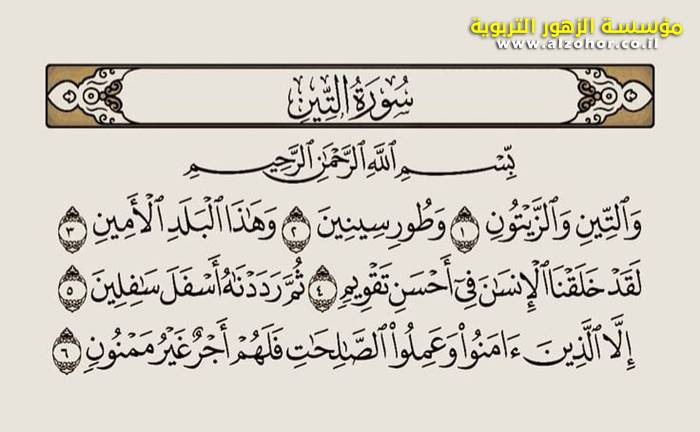 مؤسسة الزهور التربوية
www.alzohor.co.il
سُورَةُ التِّينِ
بِسْمِ اللَّهِ الرَّحْمَٰنِ الرَّحِيمِ
وَٱلتِّينِ وَٱلزَّيْتُونِ ١ وَطُورِ سِينِينَ ٢ وَهَٰذَا ٱلْبَلَدِ ٱلْأَمِينِ ٣
لَقَدْ خَلَقْنَا ٱلْإِنسَٰنَ فِىٓ أَحْسَنِ تَقْوِيمٍ ٤ ثُمَّ رَدَدْنَٰهُ أَسْفَلَ سَٰفِلِينَ ٥
إِلَّا ٱلَّذِينَ ءَامَنُوا۟ وَعَمِلُوا۟ ٱلصَّٰلِحَٰتِ فَلَهُمْ أَجْرٌ غَيْرُ مَمْنُونٍ ٦